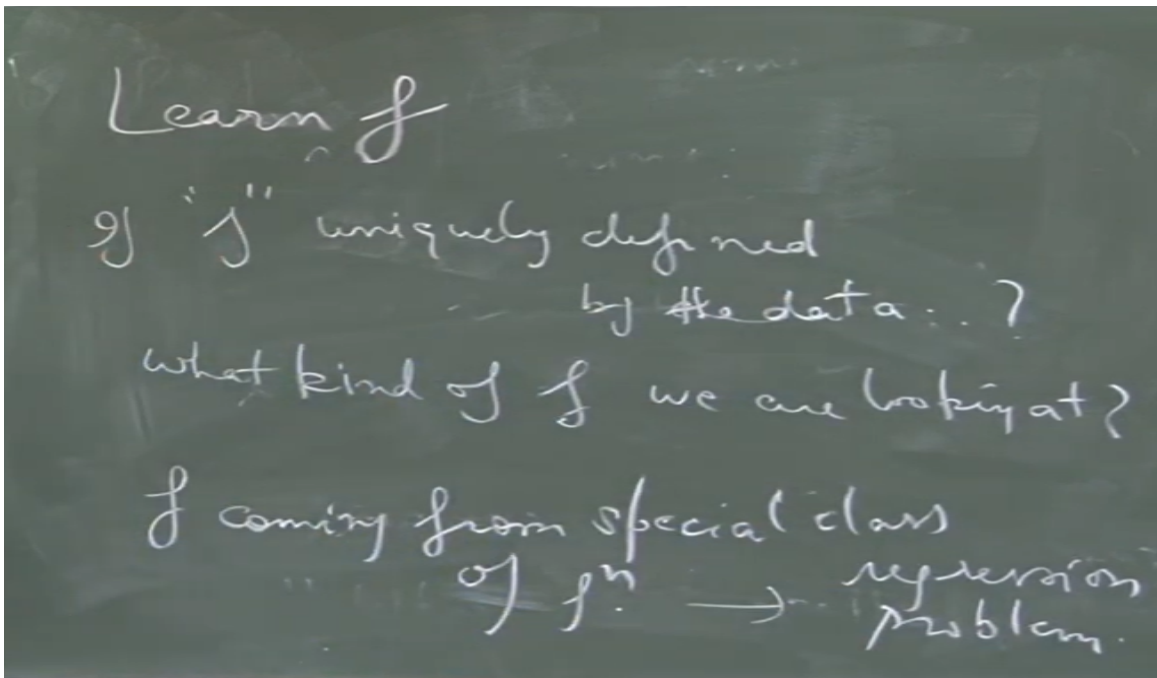 Learn f
If "f" uniquely defined
by the data...?
what kind of f we are looking at?
f coming from special class
of fⁿ. → regression
problem.